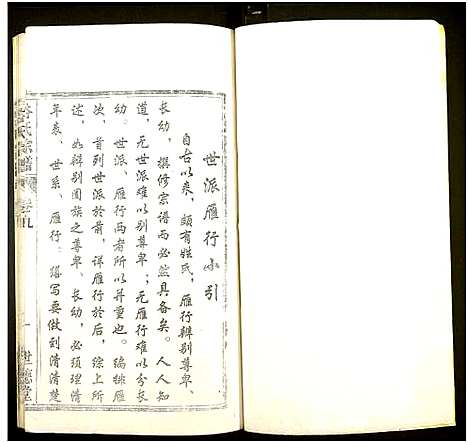 世派雁行小引
自古以来，颇有姓氏，雁行辨别尊卑、
长幼，撰修宗谱而必然具备矣。人人知
道，无世派难以别尊卑；无雁行难以分长
幼。世派、雁行两者所以并重也。编排雁
次，首列世派於前，详雁行於后，综上所
述，如辩别图族之尊卑、长幼，必须理清
年表、世系、雁行。缮写要做到清清楚
氏宗譜
卷首
一
世德堂